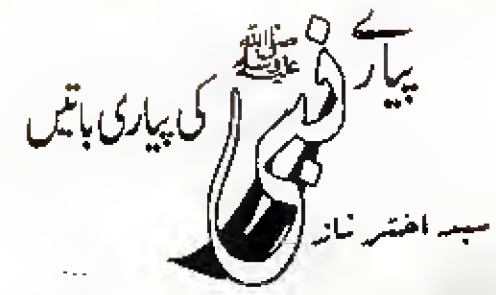 پیارے نبی ﷺ کی پیاری باتیں
سید اختر ناز